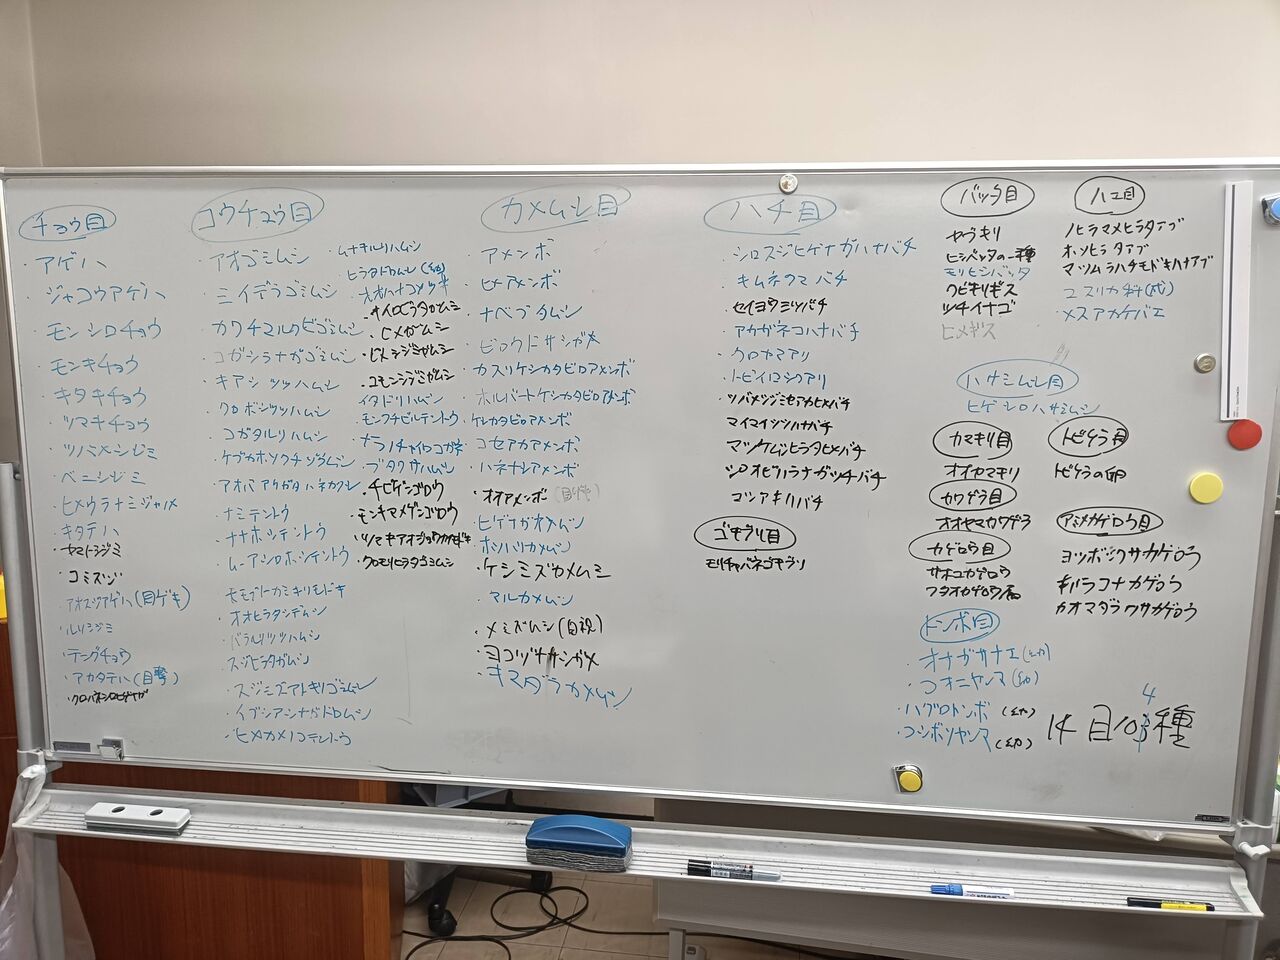 チョウ目
・アゲハ
・ジャコウアゲハ
・モンシロチョウ
・モンキチョウ
・キタキチョウ
・ツマキチョウ
・ツバメシジミ
・ベニシジミ
・ヒメウラナミジャノメ
・キタテハ
・ヤマトシジミ
・コミスジ
・アオスジアゲハ(目ゲキ)
・ルリシジミ
・テングチョウ
・アカタテハ(目撃)
・クロハネシロヒゲナガ
コウチュウ目
・アオゴミムシ
・ミイデラゴミムシ
・カワチマルクビゴミムシ
・コガシラナガゴミムシ
・キアシツツハムシ
・クロボシツツハムシ
・コガタルリハムシ
・ケブカホソクチゾウムシ
・アオバアリガタハネカクシ
・ナミテントウ
・ナナホシテントウ
・ムーアシロホシテントウ
・モモブトカミキリモドキ
・オオヒラタシデムシ
・バラルリツツハムシ
・スジヒラタガムシ
・スジミズアトキリゴミムシ
・イブシアシナガドロムシ
・ヒメカメノコテントウ
ムナキルリハムシ
ヒラタドロムシ(幼)
・オオハナコメツキ
・キイロヒラタガムシ
・ヒメガムシ
・ヒメシジミガムシ
・コモンシジミガムシ
・イタドリハムシ
・モンクチビルテントウ
・ナラノチャイロコガネ
・ブタクサハムシ
・チビゲンゴロウ
・モンキマメゲンゴロウ
・ツマキアオジョウカイモドキ
・クロモリヒラタゴミムシ
カメムシ目
・アメンボ
・ヒメアメンボ
・ナベブタムシ
・ビロウドサシガメ
・カスリケシカタビロアメンボ
・ホルバートケシカタビロアメンボ
・ケシカタビロアメンボ
・コセアカアメンボ
・ハネナシアメンボ
・オオアメンボ(目撃)
・ヒゲナガカメムシ
・ホソハリカメムシ
・ケシミズカメムシ
・マルカメムシ
・メミズムシ(目視)
・ヨコヅナサシガメ
・キマダラカメムシ
ハチ目
・シロスジヒゲナガハナバチ
・キムネクマバチ
・セイヨウミツバチ
・アカガネコハナバチ
・クロヤマアリ
・トビイロシワアリ
・ツバメシジミセアカヒメバチ
・マイマイツツハナバチ
・マツケムシヒラタヒメバチ
・シロオビハラナガツチバチ
・コツアキハバチ
ゴキブリ目
・モリチャバネゴキブリ
バッタ目
ヤブキリ
ヒシバッタの一種
モリヒシバッタ
クビキリギス
ツチイナゴ
ヒメギス
ハエ目
ノヒラマメヒラタアブ
ホソヒラタアブ
マツムラハチモドキハナアブ
ユスリカ科(成)
メスアカケバエ
ハサミムシ目
ヒゲシロハサミムシ
カマキリ目
オオカマキリ
トビケラ目
トビケラの卵
カワゲラ目
オオヤマカワゲラ
カゲロウ目
サホコカゲロウ
フタオカゲロウ属
アミメカゲロウ目
ヨツボシクサカゲロウ
キバラコナカゲロウ
カオマダラクサカゲロウ
トンボ目
・オナガサナエ(幼)
・コオニヤンマ(幼)
・ハグロトンボ(幼)
・コシボソヤンマ(幼)
14目104種